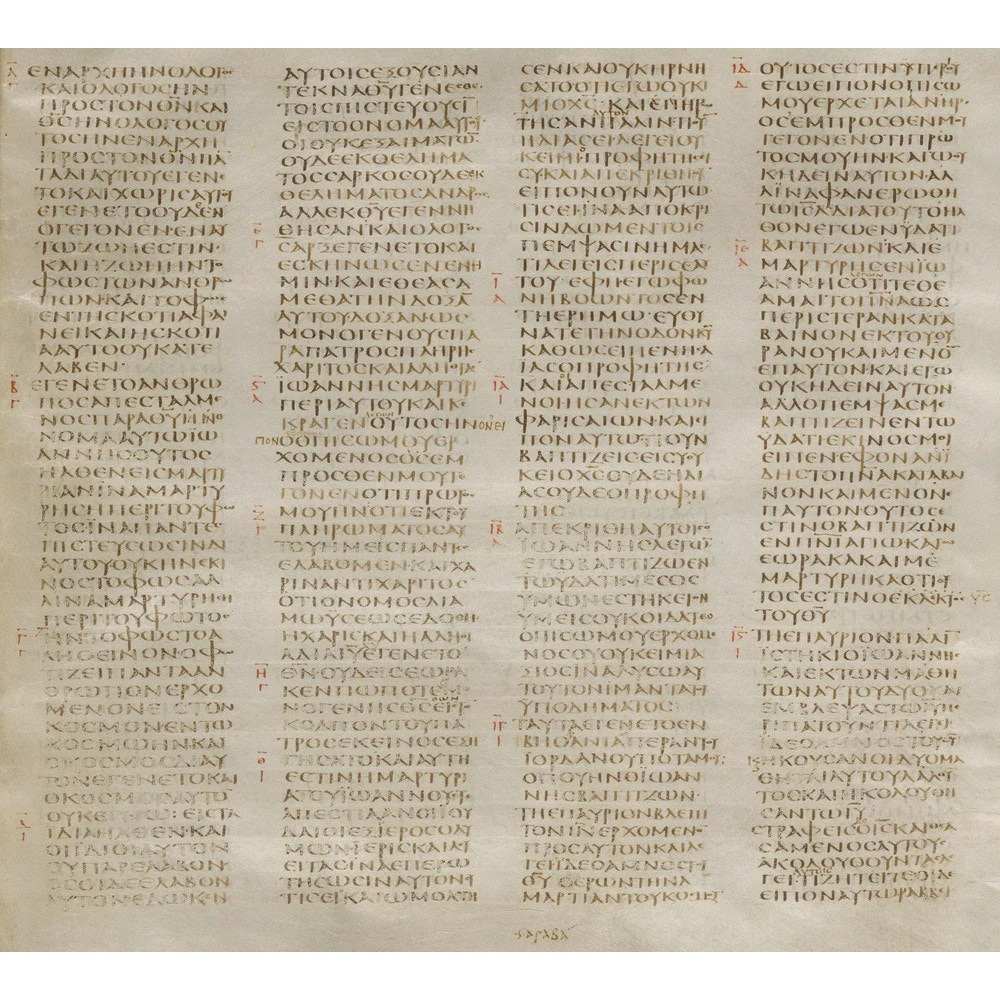 ΕΝΑΡΧΗΗΝΟΛΟΓΟC
ΚΑΙΟΛΟΓΟCΗΝ
ΠΡΟCΤΟΝΘΝΚΑΙ
ΘCΗΝΟΛΟΓΟCΟΥ
ΤΟCΗΝΕΝΑΡΧΗ
ΠΡΟCΤΟΝΘΝΠΑ
ΤΑΔΙΑΥΤΟΥΕΓΕΝΕ
ΤΟΚΑΙΧΩΡΙCΑΥΤΟΥ
ΕΓΕΝΕΤΟΟΥΔΕΝ
ΟΓΕΓΟΝΕΝΕΝΑΥ
ΤΩΖΩΗΕCΤΙΝ
ΚΑΙΗΖΩΗΗΝΤΟ
ΦΩCΤΩΝΑΝΘΡΩ
ΠΩΝΚΑΙΤΟΦΩC
ΕΝΤΗCΚΟΤΙΑΦΑΙ
ΝΕΙΚΑΙΗCΚΟΤΙ
ΑΑΥΤΟΟΥΚΑΤΕ
ΛΑΒΕΝ
ΕΓΕΝΕΤΟΑΝΘΡΩ
ΠΟCΑΠΕCΤΑΛΜΕ
ΝΟCΠΑΡΑΘΥΗΝΟ
ΝΟΜΑΑΥΤΩΙΩ
ΑΝΝΗCΟΥΤΟC
ΗΛΘΕΝΕΙCΜΑΡΤΥ
ΡΙΑΝΙΝΑΜΑΡΤΥ
ΡΗCΗΠΕΡΙΤΟΥΦΩ
ΤΟCΙΝΑΠΑΝΤΕC
ΠΙCΤΕΥCΩCΙΝΔΙ
ΑΥΤΟΥΟΥΚΗΝΕΚΙ
ΝΟCΤΟΦΩCΑΛΛ
ΑΙΝΑΜΑΡΤΥΡΗCΗ
ΠΕΡΙΤΟΥΦΩΤΟC
ΗΝΤΟΦΩCΤΟΑ
ΛΗΘΕΙΝΟΝΟΦΩ
ΤΙΖΕΙΠΑΝΤΑΑΝ
ΘΡΩΠΟΝΕΡΧΟ
ΜΕΝΟΝΕΙCΤΟΝ
ΚΟCΜΟΝΕΝΤΩ
ΚΟCΜΩΗΝΚΑΙ
ΟΚΟCΜΟCΔΙΑΥ
ΤΟΝΕΓΕΝΕΤΟΚΑΙ
ΟΚΟCΜΟCΑΥΤΟΝ
ΟΥΚΕΓΝΩΕΙCΤΑ
ΙΔΙΑΗΛΘΕΝΚΑΙ
ΟΙΙΔΙΟΙΑΥΤΟΝ
ΟΥΠΑΡΕΛΑΒΟΝ
ΟCΟΙΔΕΕΛΑΒΟΝ
ΑΥΤΟΝΕΔΩΚΕΝ
ΑΥΤΟΙCΕΞΟΥCΙΑΝ
ΤΕΚΝΑΘΥΓΕΝΕCΘΕ
ΤΟΙCΠΙCΤΕΥΟΥCΙ
ΕΙCΤΟΟΝΟΜΑΑΥΤΟΥ
ΟΙΟΥΚΕΞΑΙΜΑΤΩ
ΟΥΔΕΕΚΘΕΛΗΜΑ
ΤΟCCΑΡΚΟCΟΥΔΕΕΚ
ΘΕΛΗΜΑΤΟCΑΝΔΡΟC
ΑΛΛΕΚΘΥΕΓΕΝΝΗ
ΘΗCΑΝΚΑΙΟΛΟΓΟC
CΑΡΞΕΓΕΝΕΤΟΚΑΙ
ΕCΚΗΝΩCΕΝΕΝΗ
ΜΙΝΚΑΙΕΘΕΑCΑ
ΜΕΘΑΤΗΝΔΟΞΑ
ΑΥΤΟΥΔΟΞΑΝΩC
ΜΟΝΟΓΕΝΟΥCΠΑ
ΡΑΠΑΤΡΟCΠΛΗΡΗC
ΧΑΡΙΤΟCΚΑΙΑΛΗΘΙΑC
ΙΩΑΝΝΗCΜΑΡΤΥΡΙ
ΠΕΡΙΑΥΤΟΥΚΑΙΚΕ
ΚΡΑΓΕΝΟΥΤΟCΗΝΟΝΕΙ
ΠΟΝΟΟΠΙCΩΜΟΥΕΡ
ΧΟΜΕΝΟCΟCΕΜ
ΠΡΟCΘΕΝΜΟΥΓΕ
ΓΟΝΕΝΟΤΙΠΡΩΤΟC
ΜΟΥΗΝΟΤΙΕΚΤΟΥ
ΠΛΗΡΩΜΑΤΟCΑΥ
ΤΟΥΗΜΕΙCΠΑΝΤΕC
ΕΛΑΒΟΜΕΝΚΑΙΧΑ
ΡΙΝΑΝΤΙΧΑΡΙΤΟC
ΟΤΙΟΝΟΜΟCΔΙΑ
ΜΩΥCΕΩCΕΔΟΘΗ
ΗΧΑΡΙCΚΑΙΗΑΛΗΘΙ
ΑΔΙΑΙΥΕΓΕΝΕΤΟ
ΘΝΟΥΔΕΙCΕΩΡΑ
ΚΕΝΠΩΠΟΤΕΜΟ
ΝΟΓΕΝΗCΘCΕΙC
ΚΟΛΠΟΝΤΟΥΠΑ
ΤΡΟCΕΚΕΙΝΟCΕΞΗ
ΓΗCΑΤΟΚΑΙΑΥΤΗ
ΕCΤΙΝΗΜΑΡΤΥΡΙ
ΑΤΟΥΙΩΑΝΝΟΥΟΤΕ
ΑΠΕCΤΙΛΑΝΟΙΙΟΥ
ΔΑΙΟΙΕΞΙΕΡΟCΟΛΥ
ΜΩΝΙΕΡΙCΚΑΙΛΕΥ
ΕΙΤΑCΙΝΑΕΠΕΡΩ
ΤΗCΩCΙΝΑΥΤΟΝ
ΤΙCΕΙΚΑΙΩΜΟΛΟΓΗ
CΕΝΚΑΙΟΥΚΗΡΝΗ
CΑΤΟΟΤΙΕΓΩΟΥΚΙ
ΜΙΟΧCΚΑΙΕΠΗΡΩ
ΤΗCΑΝΠΑΛΙΝΤΙΟΥ
ΗΛΙΑCΕΙΛΕΓΕΙΟΥ
ΚΕΙΜΙΠΡΟΦΗΤΗCΕΙ
CΥΚΑΙΑΠΕΚΡΙΘΗΟΥ
ΕΙΠΟΝΟΥΝΑΥΤΩ
ΤΙCΕΙΙΝΑΑΠΟΚΡΙ
CΙΝΔΩΜΕΝΤΟΙC
ΠΕΜΨΑCΙΝΗΜΑC
ΤΙΛΕΓΕΙCΠΕΡΙCΕΑΥ
ΤΟΥΕΦΗΕΓΩΦΩ
ΝΗΒΟΩΝΤΟCΕΝ
ΤΗΕΡΗΜΩΕΥΘΥ
ΝΑΤΕΤΗΝΟΔΟΝΚΥ
ΚΑΘΩCΕΙΠΕΝΗCΑ
ΙΑCΟΠΡΟΦΗΤΗC
ΚΑΙΑΠΕCΤΑΛΜΕ
ΝΟΙΗCΑΝΕΚΤΩΝ
ΦΑΡΙCΑΙΩΝΚΑΙΕΙ
ΠΟΝΑΥΤΩΤΙΟΥΝ
ΒΑΠΤΙΖΕΙCΕΙCΥΟΥ
ΚΕΙΟΧCΟΥΔΕΗΛΙ
ΑCΟΥΔΕΟΠΡΟΦΗ
ΤΗC
ΑΠΕΚΡΙΘΗΑΥΤΟΙC
ΙΩΑΝΝΗCΛΕΓΩ
ΕΓΩΒΑΠΤΙΖΩΕΝ
ΤΩΥΔΑΤΙΜΕCΟC
ΥΜΩΝΕCΤΗΚΕΙΟΝ
ΥΜΕΙCΟΥΚΟΙΔΑΤΕΟ
ΟΠΙCΩΜΟΥΕΡΧΟΜΕ
ΝΟCΟΥΟΥΚΕΙΜΙΑ
ΞΙΟCΙΝΑΛΥCΩΑΥ
ΤΟΥΤΟΝΙΜΑΝΤΑΤΟΥ
ΥΠΟΔΗΜΑΤΟC
ΤΑΥΤΑΕΓΕΝΕΤΟΕΝ
ΒΗΘΑΝΙΑΠΕΡΑΝΤΟΥ
ΙΟΡΔΑΝΟΥΠΟΤΑΜΟΥ
ΟΠΟΥΗΝΟΙΩΑΝ
ΝΗCΒΑΠΤΙΖΩΝ
ΤΗΕΠΑΥΡΙΟΝΒΛΕΠΙ
ΤΟΝΙΝΕΡΧΟΜΕΝΟΝ
ΠΡΟCΑΥΤΟΝΚΑΙΛΕ
ΓΕΙΙΔΕΟΑΜΝΟCΤΟΥ
ΘΥΟΕΡΩΝΤΗΝΑ
ΜΑΡΤΙΑΝΤΟΥΚΟCΜΟΥ
ΟΥΤΟCΕCΤΙΝΥΠΕΡΟΥ
ΕΓΩΕΙΠΟΝΟΠΙCΩ
ΜΟΥΕΡΧΕΤΑΙΑΝΗΡ
ΟCΕΜΠΡΟCΘΕΝΜΟΥ
ΓΕΓΟΝΕΝΟΤΙΠΡΩ
ΤΟCΜΟΥΗΝΚΑΓΩΟΥ
ΚΗΔΕΙΝΑΥΤΟΝΑΛ
ΛΙΝΑΦΑΝΕΡΩΘΗ
ΤΩΙCΛΔΙΑΤΟΥΤΟΗΛ
ΘΟΝΕΓΩΕΝΥΔΑΤΙ
ΒΑΠΤΙΖΩΝΚΑΙΕ
ΜΑΡΤΥΡΗCΕΝΙΩ
ΑΝΝΗCΟΤΙΤΕΘΕ
ΑΜΑΙΤΟΠΝΑΩC
ΠΕΡΙCΤΕΡΑΝΚΑΤΑ
ΒΑΙΝΟΝΕΚΤΟΥΟΥ
ΡΑΝΟΥΚΑΙΜΕΝΟΝ
ΕΠΑΥΤΟΝΚΑΙΕΓΩ
ΟΥΚΗΔΕΙΝΑΥΤΟΝ
ΑΛΛΟΠΕΜΨΑCΜΕ
ΒΑΠΤΙΖΕΙΝΕΝΤΩ
ΥΔΑΤΙΕΚΙΝΟCΜΟΙ
ΕΙΠΕΝΕΦΟΝΑΝΙ
ΔΗCΤΟΠΝΑΚΑΤΑΒΑΙ
ΝΟΝΚΑΙΜΕΝΟΝΕ
ΠΑΥΤΟΝΟΥΤΟCΕ
CΤΙΝΟΒΑΠΤΙΖΩΝ
ΕΝΠΝΙΑΓΙΩΚΑΓΩ
ΕΩΡΑΚΑΚΑΙΜΕ
ΜΑΡΤΥΡΗΚΑΟΤΙΟΥ
ΤΟCΕCΤΙΝΟΕΚΛΕΚΤΟC ΥC
ΤΟΥΘΥ
ΤΗΕΠΑΥΡΙΟΝΠΑΛΙ
ΙCΤΗΚΙΟΙΩΑΝΝΗC
ΚΑΙΕΚΤΩΝΜΑΘΗ
ΤΩΝΑΥΤΟΥΔΥΟΚΑΙ
ΕΜΒΛΕΨΑCΤΩΙΥΠΕ
ΡΙΠΑΤΟΥΝΤΙΛΕΓΕΙ
ΙΔΕΟΑΜΝΟCΤΟΥΘΥ
ΚΗΚΟΥCΑΝΟΙΔΥΟΜΑ
ΘΗΤΑΙΑΥΤΟΥΛΑΛΟΥ
ΤΟCΚΑΙΗΚΟΛΟΥΘΗ
CΑΝΤΩΙΥ
CΤΡΑΦΕΙCΟΙCΚΑΙΘΕΑ
CΑΜΕΝΟCΑΥΤΟΥC
ΑΚΟΛΟΥΘΟΥΝΤΑCΛΕ
ΓΕΙΤΙΖΗΤΕΙΤΕΟΙΔΕ
ΕΙΠΟΝΑΥΤΩΡΑΒΒΙ